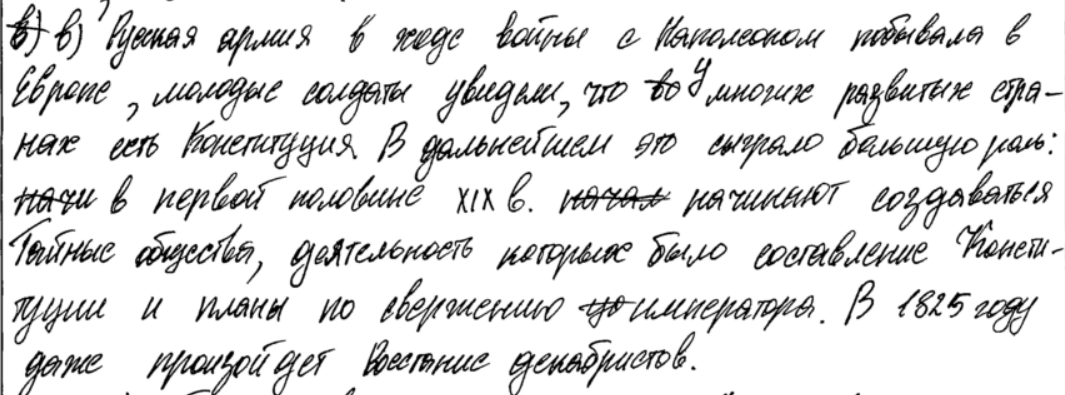 в) Русская армия в ходе войны с Наполеоном побывала в
Европе, молодые солдаты увидели, что у многих развитых стра-
нах есть Конституция. В дальнейшем это сыграло большую роль:
в первой половине XIX в. начинают создаваться
Тайные общества, деятельность которых было составление Консти-
туции и планы по свержению императора. В 1825 году
даже произойдет Восстание декабристов.